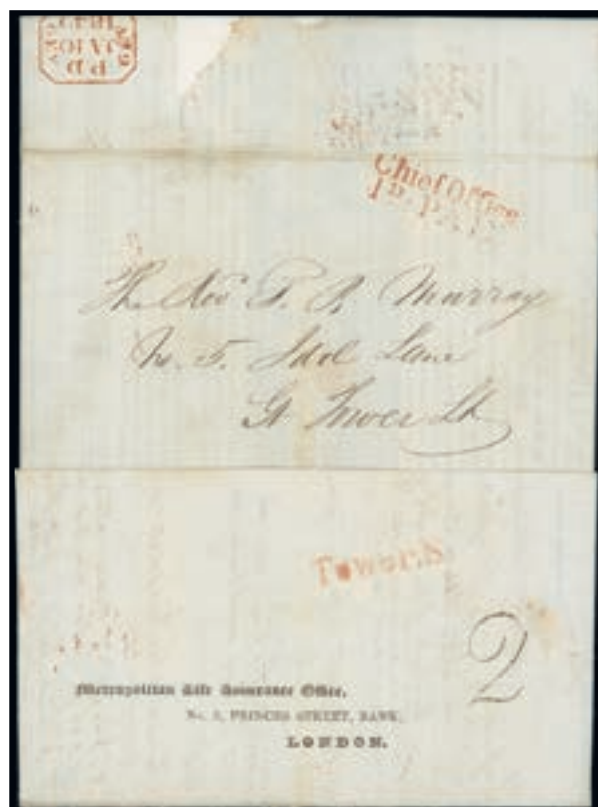 PD
JA 10
Chief Office
The Rev T. R. Murray
No. 5. Idol Lane
Gt Tower St
Tower S
2
Metropolitan Life Assurance Office,
PRINCES STREET, BANK,
LONDON.